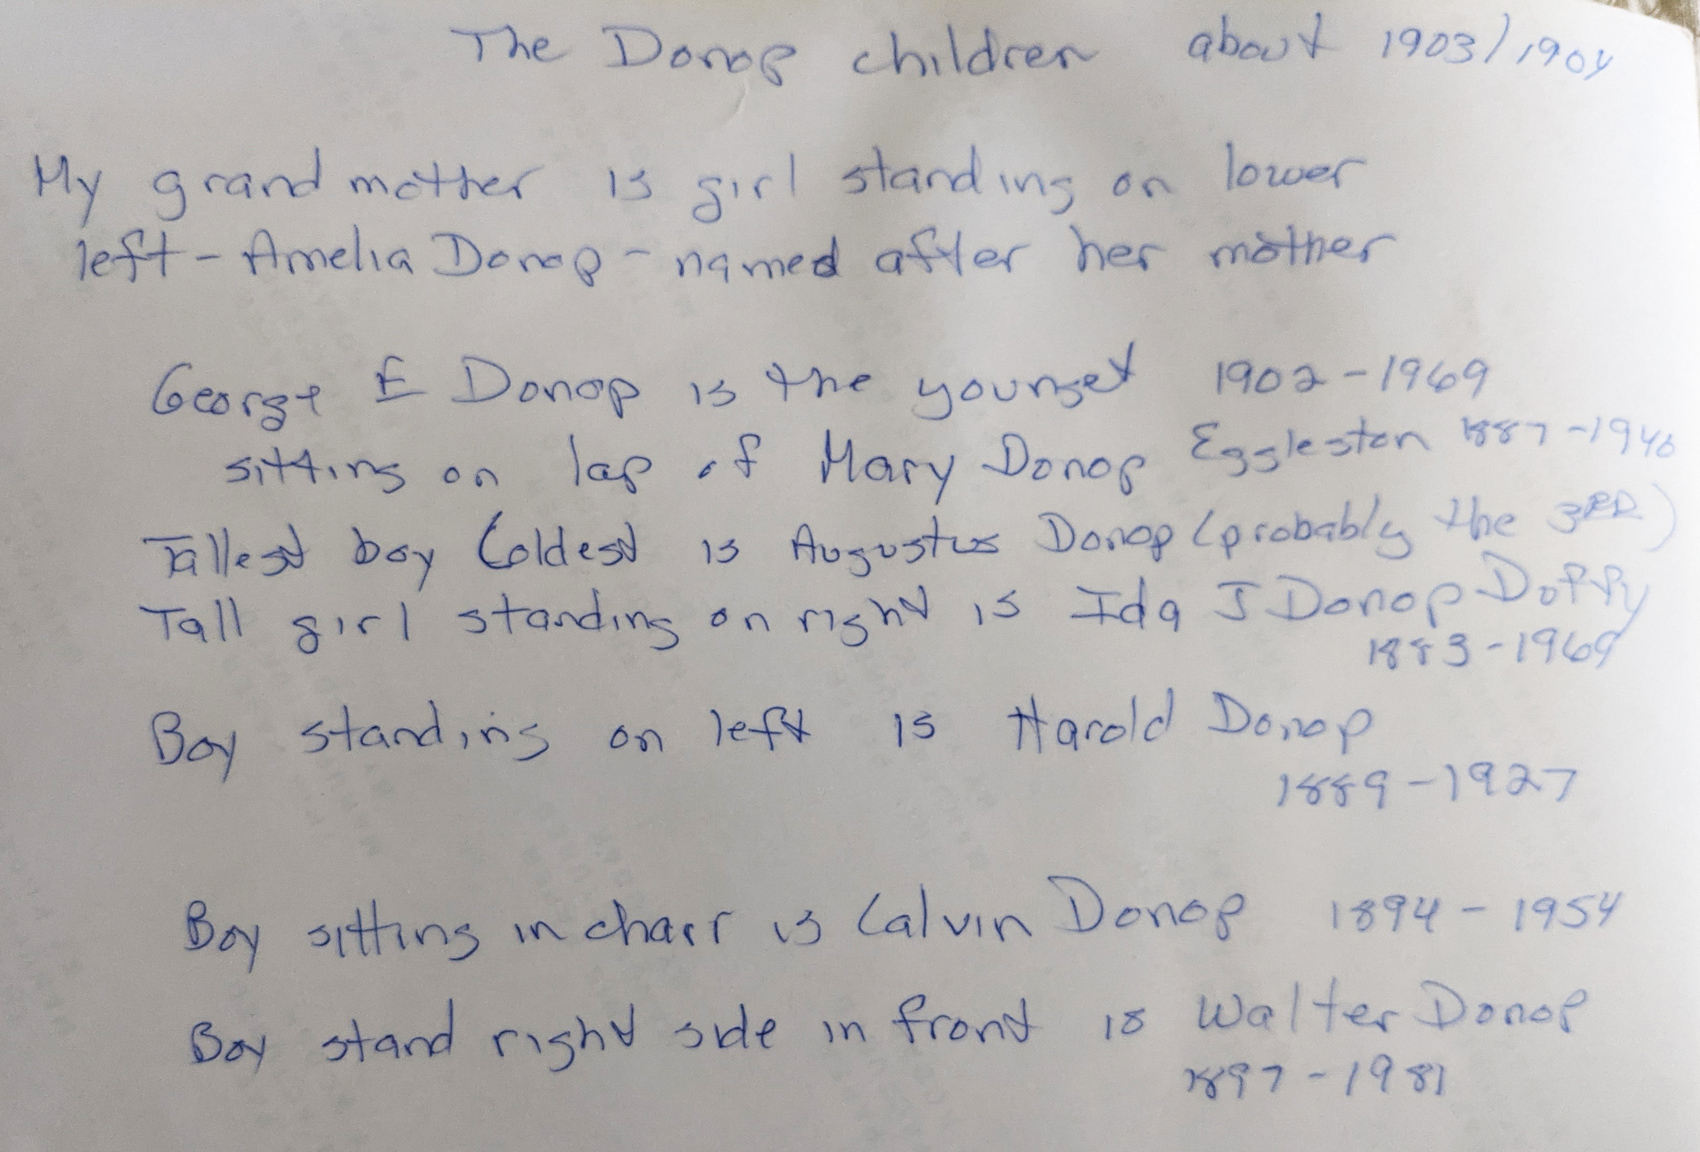 The Donop children about 1903/1904
My grandmother is girl standing on lower
left - Amelia Donop - named after her mother
George E Donop is the younget 1902-1969
sitting on lap of Mary Donop Eggleston 1887-1940
Tallest boy (oldest is Augustus Donop (probably the 3RD)
Tall girl standing on right is Ida J Donop Doffy
1883-1969
Boy standing on left is Harold Donop
1889-1927
Boy sitting in chair is Calvin Donop 1894-1954
Boy stand right side in front is Walter Donop
1897-1981